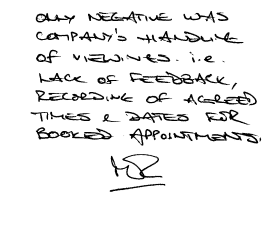 ONLY NEGATIVE WAS
COMPANY'S HANDLING
OF VIEWINGS. i.e.
LACK OF FEEDBACK,
RECORDING OF AGREED
TIMES & DATES FOR
BOOKED APPOINTMENTS.